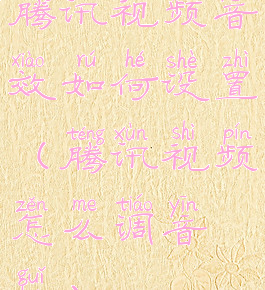 腾讯视频音
xiào rú hé shè zhì
效如何设置
téng xùn shì pín
（腾讯视频
zěn me tiáo yīn
怎么调音
guǐ